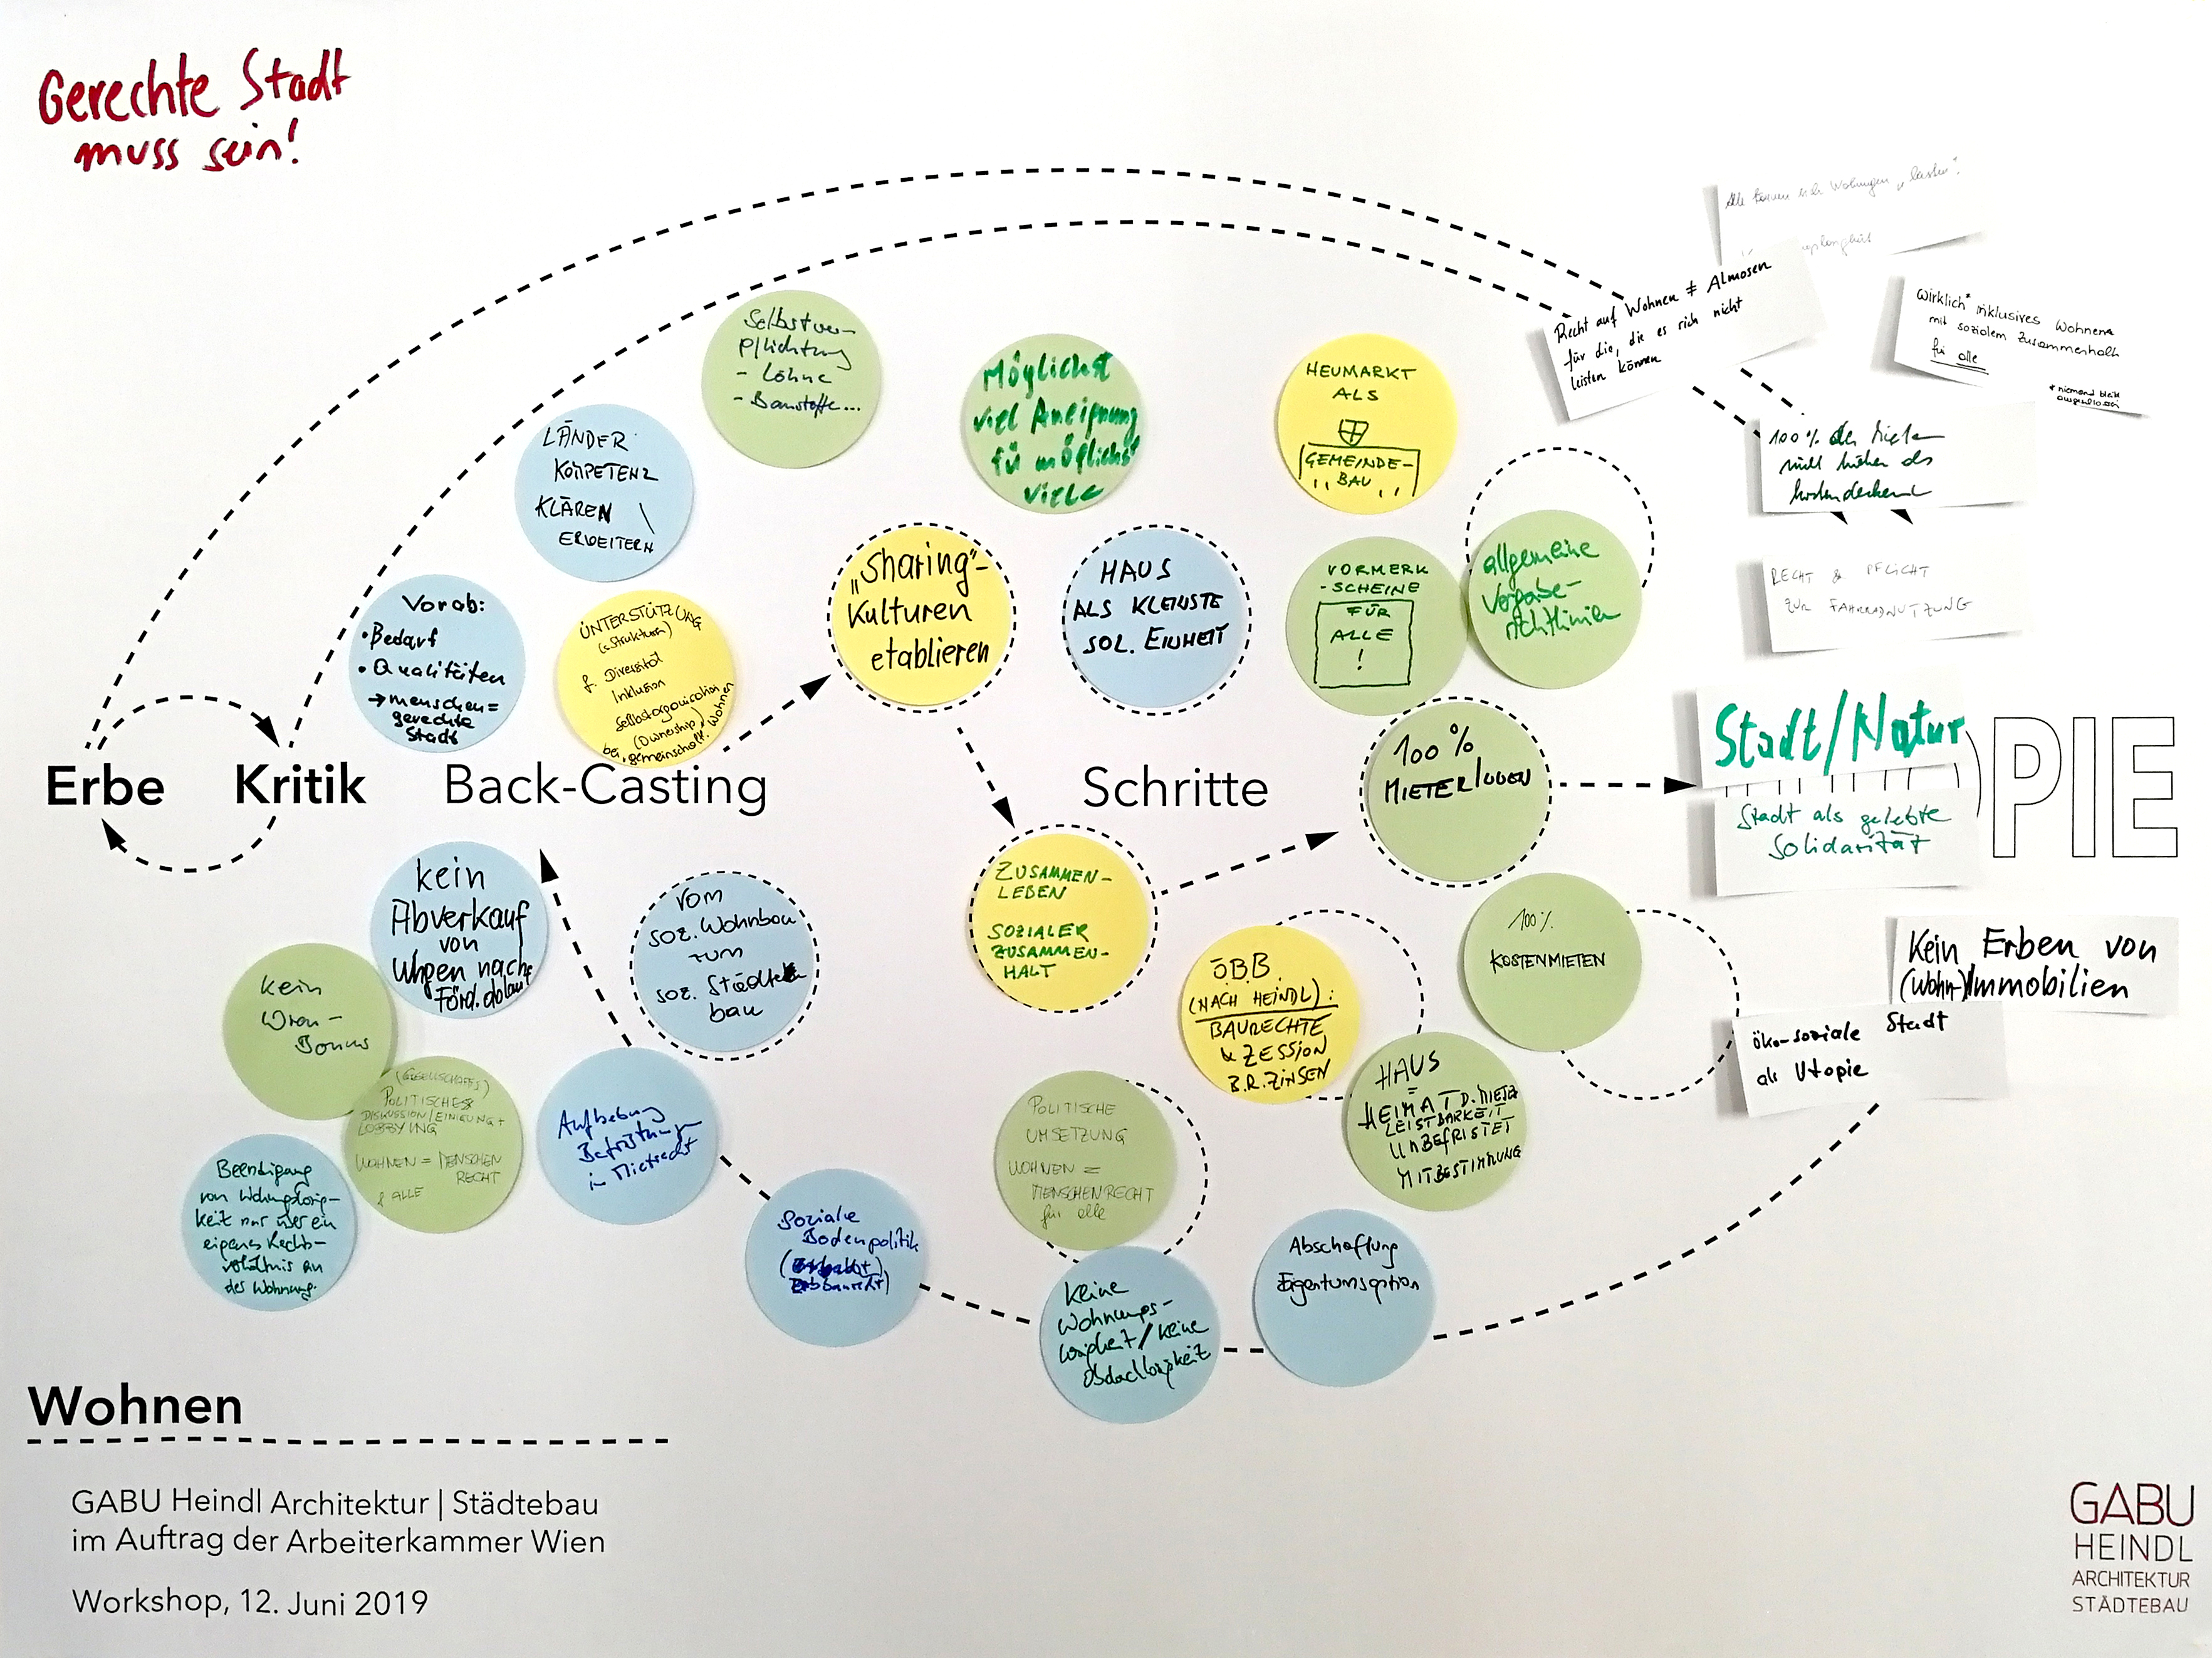 Gerechte Stadt
muss sein!
Selbstver-
pflichtung
- Löhne
- Baustoffe...
LÄNDER
KOMPETENZ
KLÄREN \
ERWEITERN
Möglichst
viel Aneignung
für möglichst
viele
HEUMARKT
ALS
GEMEINDE-
BAU
Alle können sich Wohnungen „leisten".
Recht auf Wohnen ≠ Almosen
für die, die es sich nicht
leisten können
Wirklich* inklusives Wohnen
mit sozialem Zusammenhalt
für alle
* niemand bleibt
ausgeschlossen
100% der Mieten
nicht höher als
kostendeckend
RECHT & PFLICHT
ZUR FAHRRADNUTZUNG
Vorab:
• Bedarf
• Qualitäten
→ menschen=
gerechte
Stadt
UNTERSTÜTZUNG
(Strukturen)
f. Diversität
Inklusion
Selbstorganisation
(Ownership)
bei gemeinschaftl. Wohnen
„Sharing"-
Kulturen
etablieren
HAUS
ALS KLEINSTE
SOL. EINHEIT
VORMERK
-SCHEINE
FÜR
ALLE
!
allgemeine
Vergabe-
richtlinien
Erbe
Kritik
Back-Casting
Schritte
100%
MIETER/INNEN
Stadt/Natur
OPIE
Stadt als gelebte
Solidarität
kein
Abverkauf
von
Whgen nach
Förd.ablauf
vom
soz. Wohnbau
zum
soz. Städte
bau
ZUSAMMEN-
LEBEN
SOZIALER
ZUSAMMEN-
HALT
ÖBB
(NACH HEINDL):
BAURECHTE
& ZESSION
B.R.ZINSEN
100%
KOSTENMIETEN
Kein Erben von
(Wohn-)Immobilien
öko-soziale Stadt
als Utopie
kein
Wien-
Bonus
(GESELLSCHAFTS)
POLITISCHE
DISKUSSION/EINIGUNG+
LOBBYING
WOHNEN = MENSCHEN
RECHT
f ALLE
Beendigung
von Wohnungslosig-
keit nur über ein
eigenes Rechts-
verhältnis an
der Wohnung.
Aufhebung
Befristungen
in Mietrecht
Soziale
Bodenpolitik
Erbbaurecht)
POLITISCHE
UMSETZUNG
WOHNEN =
MENSCHENRECHT
für alle
HAUS
=
HEIMAT D. MIETZ
LEISTBARKEIT
UNBEFRISTET
MITBESTIMMUNG
keine
Wohnungs-
losigkeit/keine
Obdachlosigkeit
Abschaffung
Eigentumsoption
Wohnen
GABU Heindl Architektur | Städtebau
im Auftrag der Arbeiterkammer Wien
Workshop, 12. Juni 2019
GABU
HEINDL
ARCHITEKTUR
STÄDTEBAU